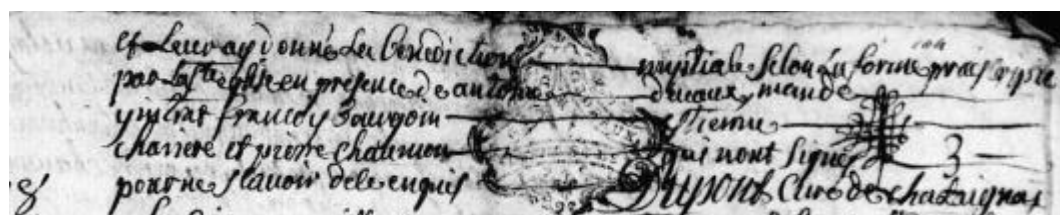 et leur ay donné la bénédiction nuptiale selon la forme prescripte
par la ste eglise en presence de antoine ducaux, mande
francoy Bourgoin Etienne
charrere et pierre chaumeon qui nont signé
pour ne sçavoir de ce enquis Dupont Curé de chataignat